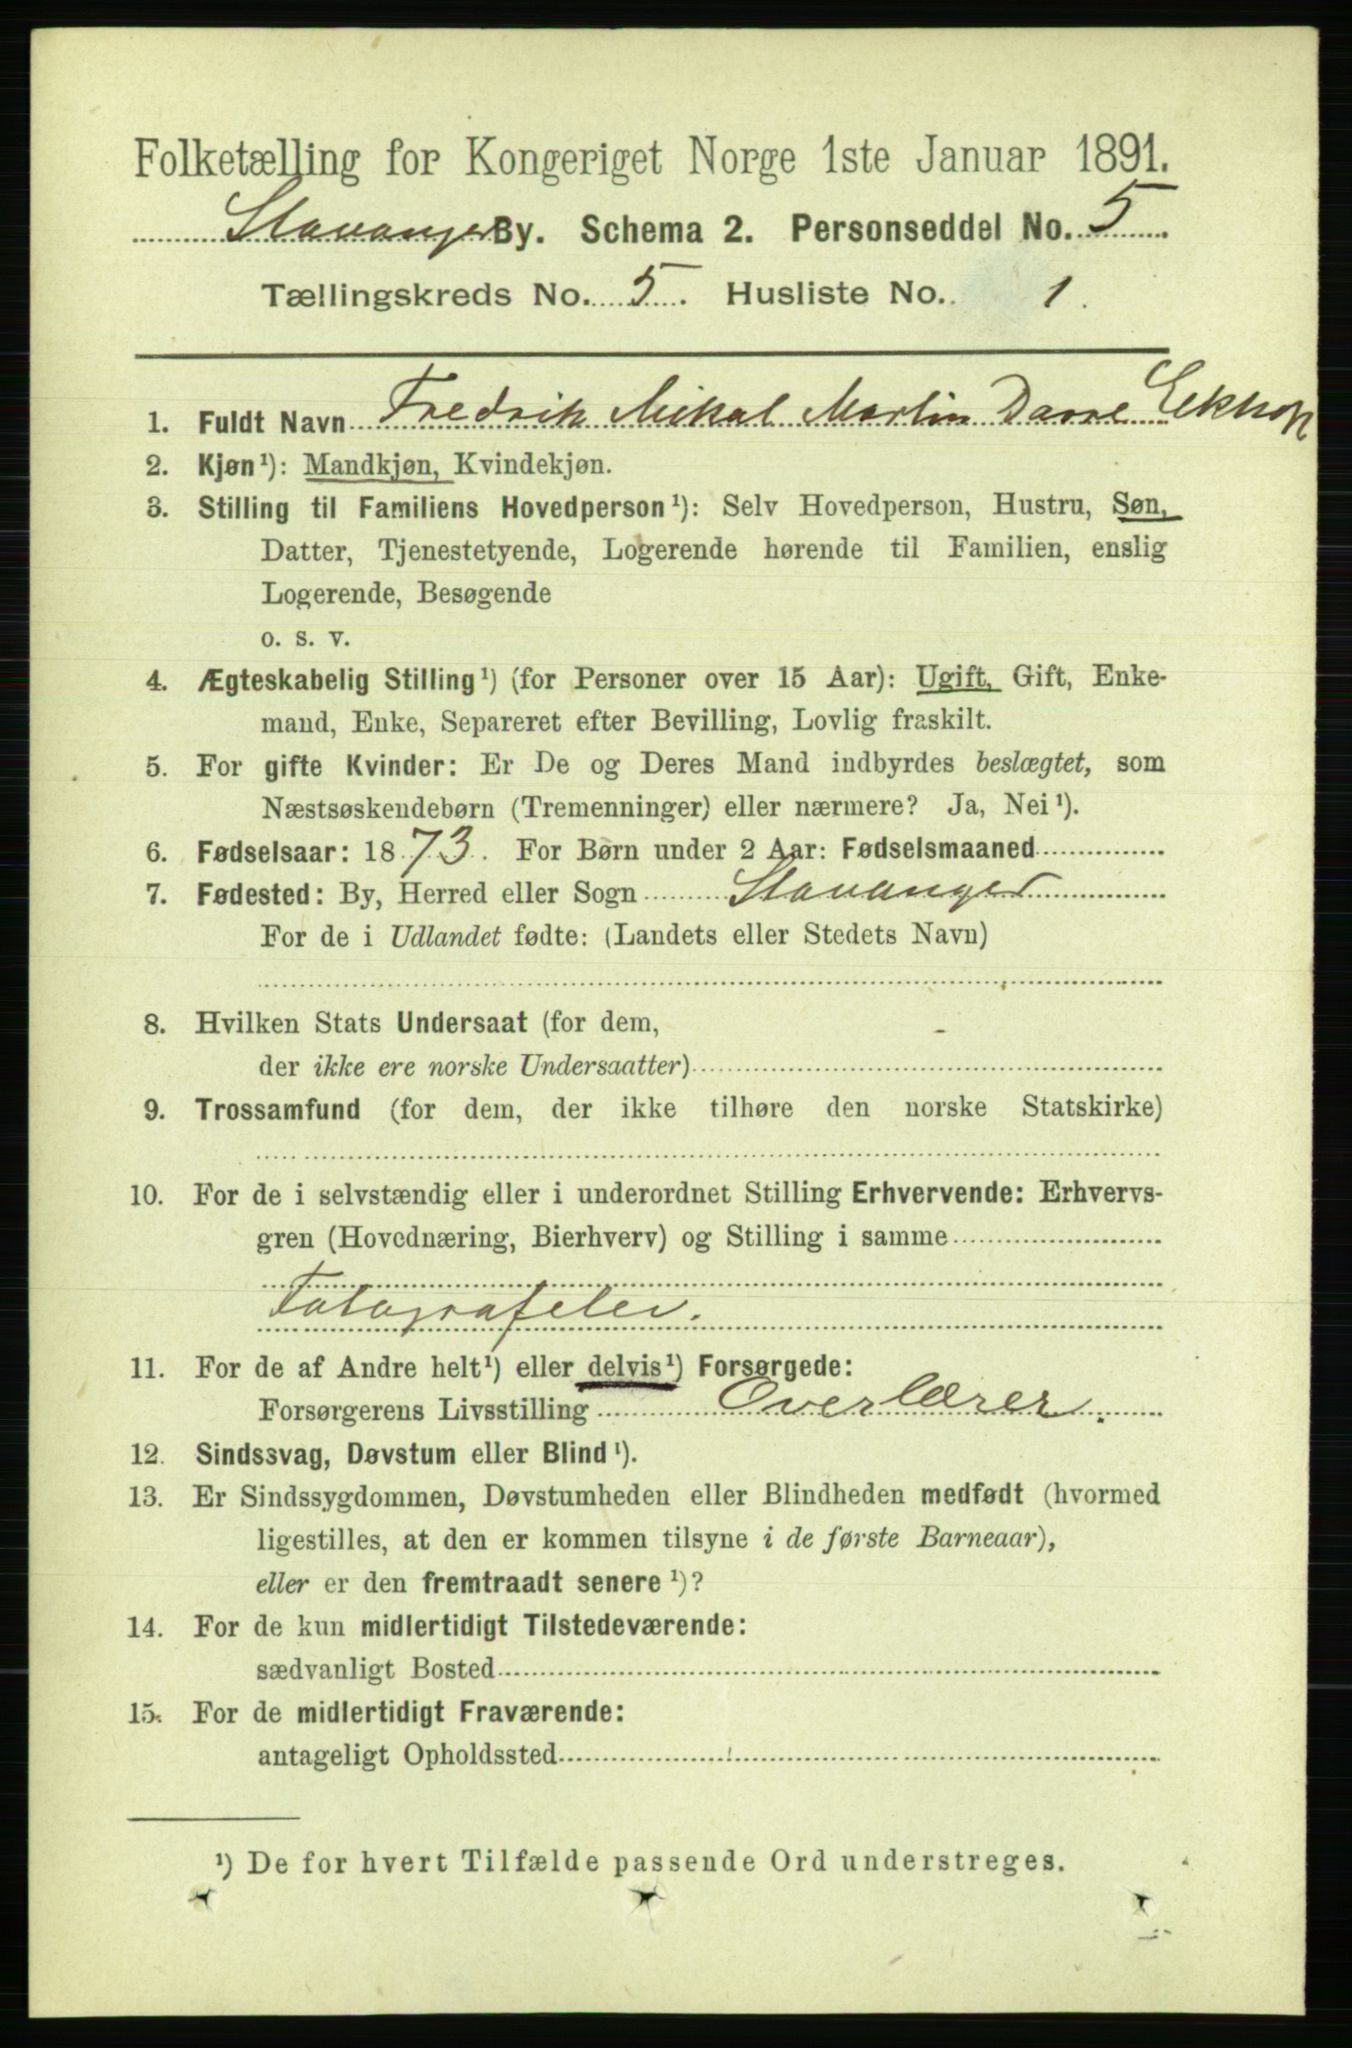 Folketælling for Kongeriget Norge 1ste Januar 1891.
Stavanger By. Schema 2. Personseddel No. 5
Tællingskreds No. 5. Husliste No. 1.
1. Fuldt Navn Fredrik Mikal Martin Darre Eckhoff
2. Kjøn¹): Mandkjøn, Kvindekjøn.
3. Stilling til Familiens Hovedperson¹): Selv Hovedperson, Hustru, Søn,
Datter, Tjenestetyende, Logerende hørende til Familien, enslig
Logerende, Besøgende
o. s. v.
4. Ægteskabelig Stilling¹) (for Personer over 15 Aar): Ugift, Gift, Enke-
mand, Enke, Separeret efter Bevilling, Lovlig fraskilt.
5. For gifte Kvinder: Er De og Deres Mand indbyrdes beslægtet, som
Næstsøskendebørn (Tremenninger) eller nærmere? Ja, Nei¹).
6. Fødselsaar: 1873. For Børn under 2 Aar: Fødselsmaaned
7. Fødested: By, Herred eller Sogn Stavanger
For de i Udlandet fødte: (Landets eller Stedets Navn)
8. Hvilken Stats Undersaat (for dem,
der ikke ere norske Undersaatter)
9. Trossamfund (for dem, der ikke tilhøre den norske Statskirke)
10. For de i selvstændig eller i underordnet Stilling Erhvervende: Erhvervs-
gren (Hovednæring, Bierhverv) og Stilling i samme
Fotografelev.
11. For de af Andre helt¹) eller delvis¹) Forsørgede:
Forsørgerens Livsstilling Overlærer.
12. Sindssvag, Døvstum eller Blind¹).
13. Er Sindssygdommen, Døvstumheden eller Blindheden medfødt (hvormed
ligestilles, at den er kommen tilsyne i de første Barneaar),
eller er den fremtraadt senere¹)?
14. For de kun midlertidigt Tilstedeværende:
sædvanligt Bosted
15. For de midlertidigt Fraværende:
antageligt Opholdssted
¹) De for hvert Tilfælde passende Ord understreges.